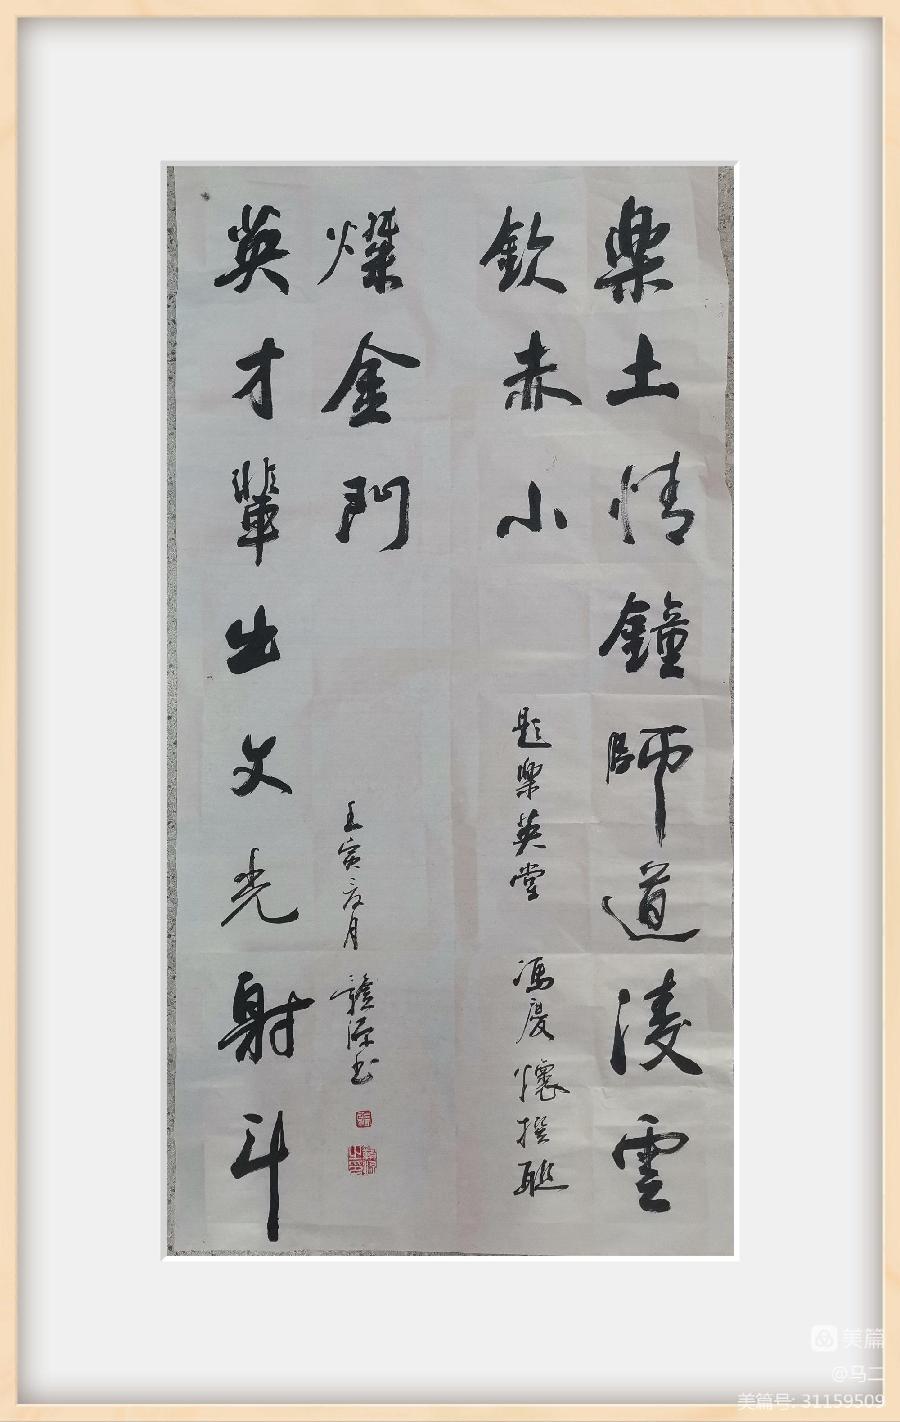 樂土情鐘師道淩雲
欽赤小
題樂英堂 馮慶懷撰聯
英才輩出文光射斗
燦金門
壬寅夏月 源书
美篇
@马二
美篇号: 31159509